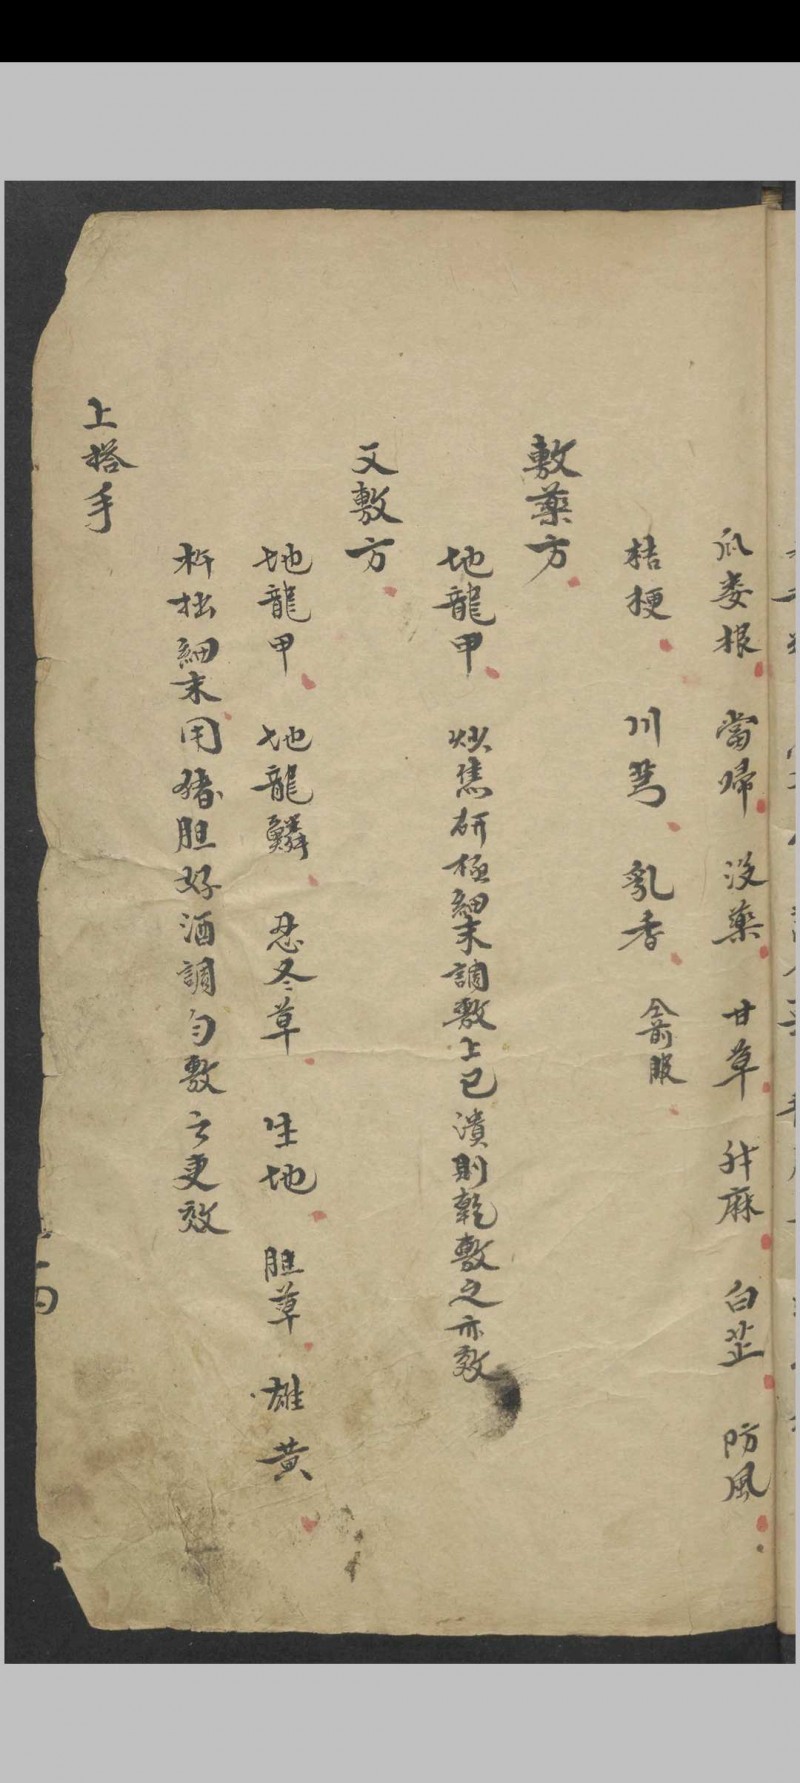 瓜蔞根 當歸 沒藥 甘草 升麻 白芷 防風
桔梗 川芎 乳香 仝前服
敷藥方
地龍甲 炒焦研極細末調敷上已潰則乾敷之亦效
又敷方
地龍甲 地龍鱗 忍冬草 生地 胆草 雄黃
細末用豬胆好酒調勻敷之更效
上搭手